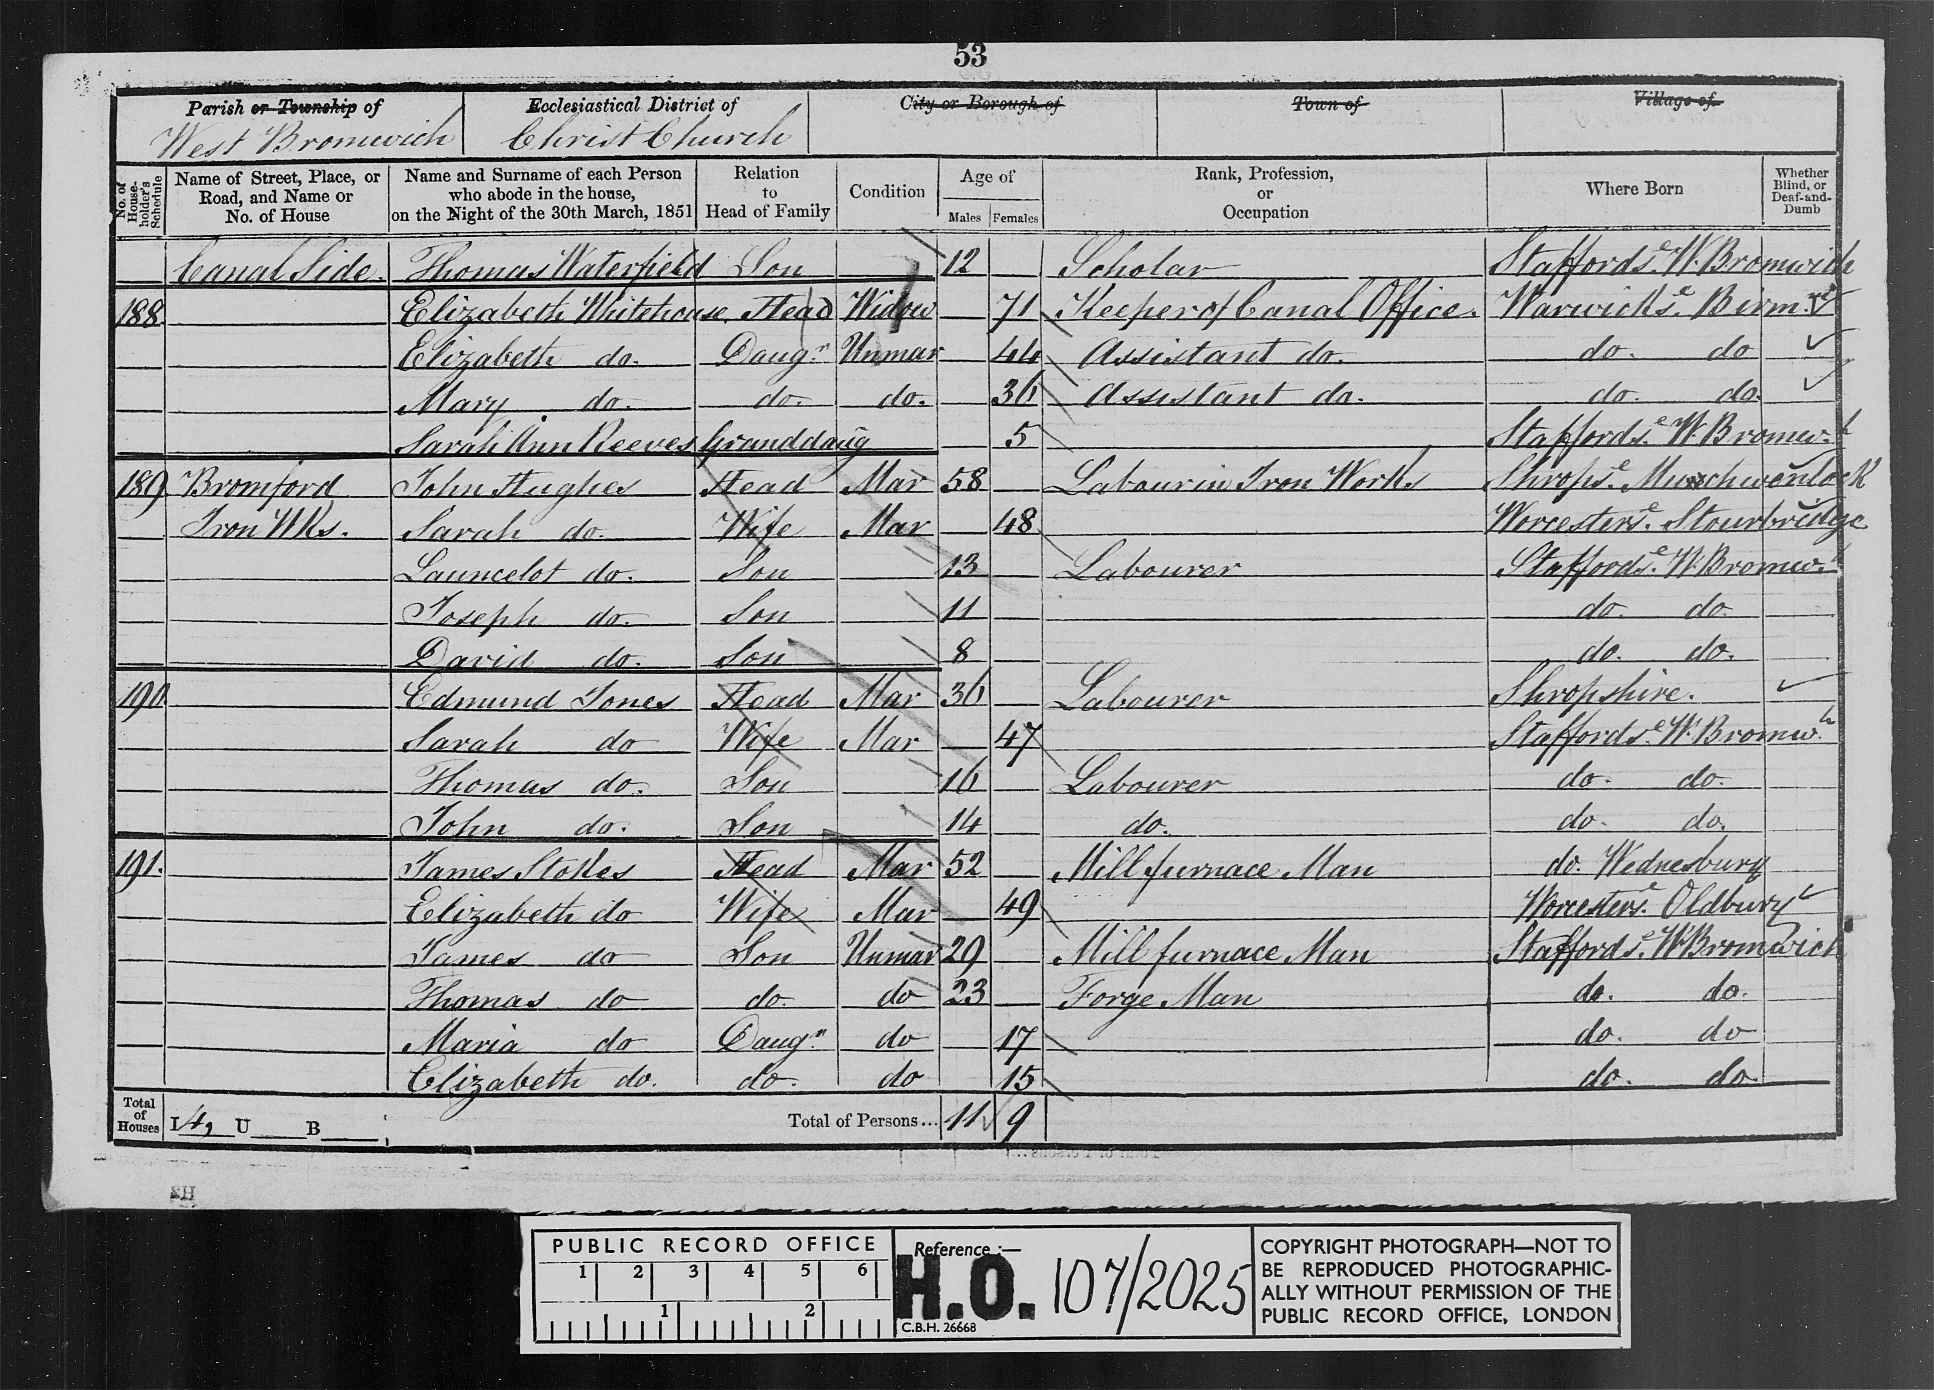 53
Parish or Township of Ecclesiastical District of City or Borough of Town of Village of
West Bromwich Christ Church
No. of House-holder's Schedule Name of Street, Place, or Road, and Name or No. of House Name and Surname of each Person who abode in the house, on the Night of the 30th March, 1851 Relation to Head of Family Condition Age of Males Females Rank, Profession, or Occupation Where Born Whether Blind, or Deaf-and-Dumb
Canal Side. Thomas Waterfield Son 12 Scholar Staffords.e W. Bromwich
188 Elizabeth Whitehouse. Head Widow 71 Keeper of Canal Office. Warwicks.e Birm.
Elizabeth do. Daug.r Unmar 44 Assistant do. do. do
Mary do. do. do. 36 Assistant do. do. do.
Sarah Ann Reeves Granddaug 5 Staffords.e W. Bromw.h
189 Bromford John Hughes Head Mar 58 Labour in Iron Works Shrops.e Muchwenlock
Iron Wks. Sarah do. Wife Mar 48 Worcesters.e Stourbridge
Launcelot do. Son 13 Labourer Staffords.e W. Bromw.h
Joseph do. Son 11 do. do.
David do. Son 8 do. do.
190 Edmund Jones Head Mar 36 Labourer Shropshire.
Sarah do Wife Mar 47 Staffords.e W. Bromw.h
Thomas do. Son 16 Labourer do. do.
John do. Son 14 do. do. do.
191. James Stokes Head Mar 52 Mill furnace Man do. Wednesbury
Elizabeth do Wife Mar 49 Worcesters.e Oldbury
James do Son Unmar 29 Mill furnace Man Staffords.e W Bromwich
Thomas do do. do 23 Forge Man do. do.
Maria do Daug.r do 17 do. do
Elizabeth do. do. do 15 do. do.
Total of Houses I 4, U B Total of Persons... 11 9
PUBLIC RECORD OFFICE
1 2 3 4 5 6
1 2
Reference :—
H.O. 107/2025
C.B.H. 26668
COPYRIGHT PHOTOGRAPH—NOT TO
BE REPRODUCED PHOTOGRAPHIC-
ALLY WITHOUT PERMISSION OF THE
PUBLIC RECORD OFFICE, LONDON